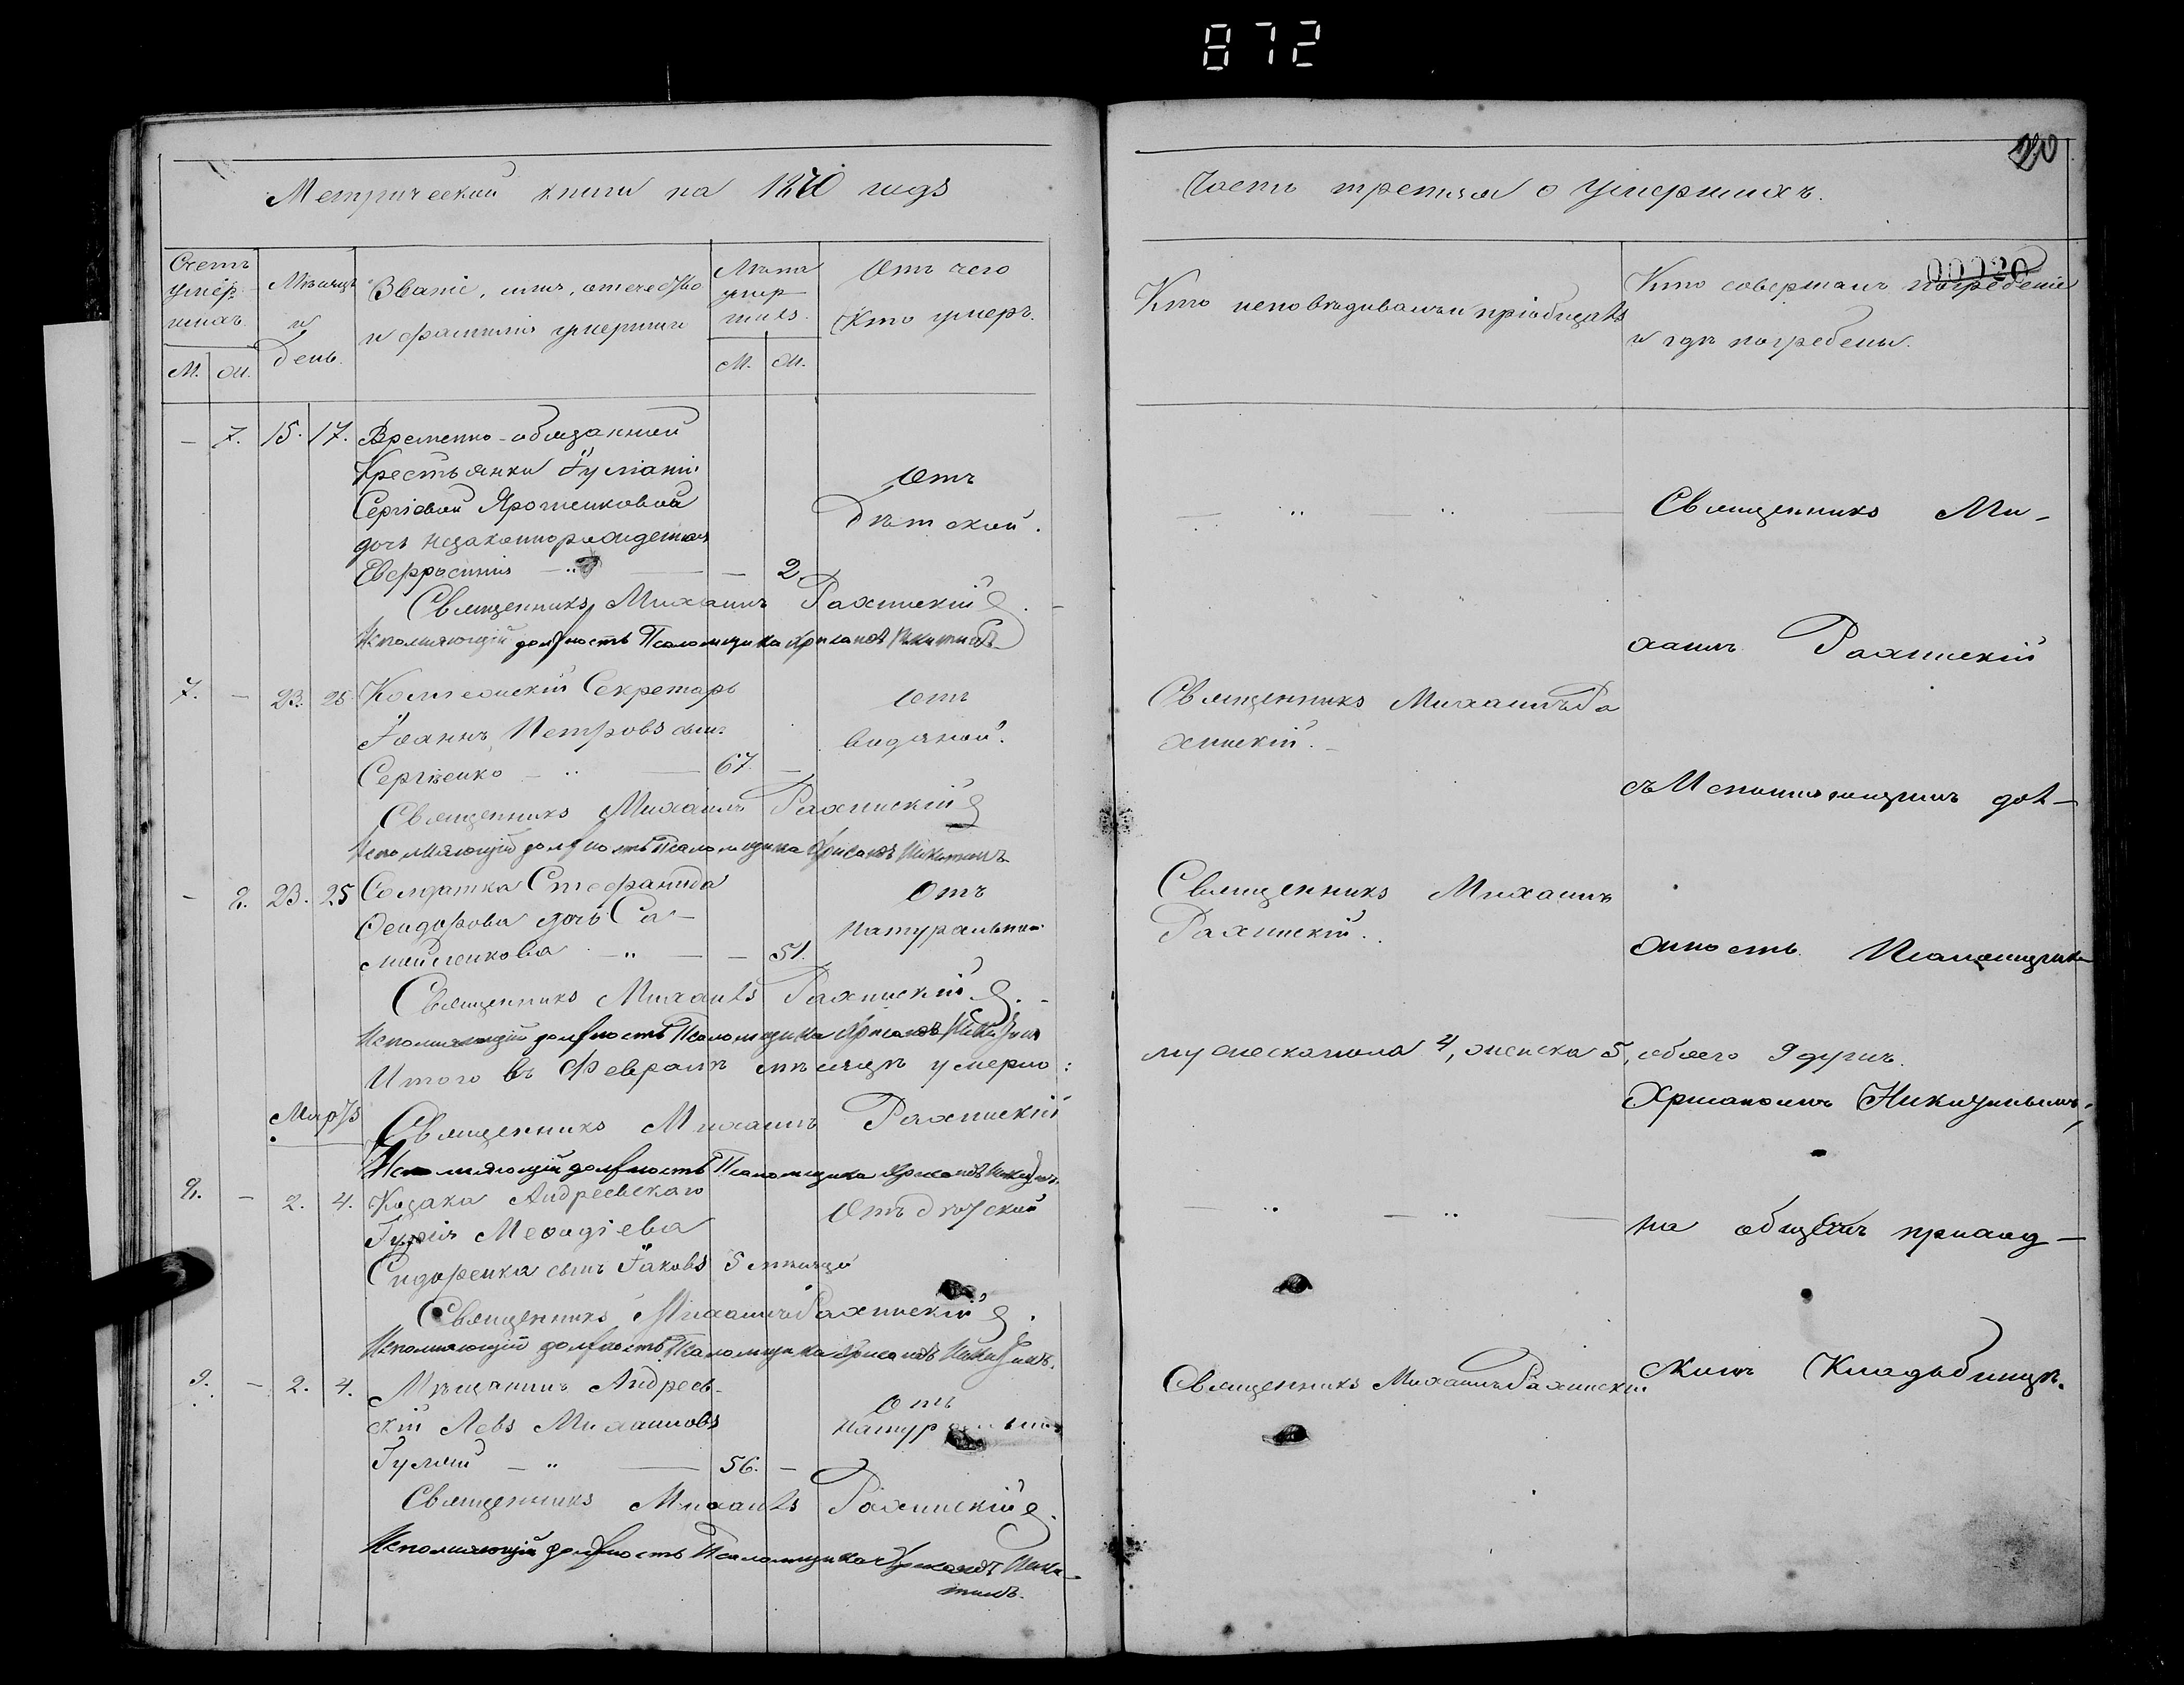 872
20
Метрической книги на 1870 годъ
Часть третья о умершихъ.
00020
Счетъ умершихъ.
М. Ж.
Мѣсяцъ и день.
Званіе, имя, отечество
и фамилія умершихъ
Лѣта умершихъ.
М. Ж.
Отъ чего
кто умеръ.
Кто исповѣдывалъ и пріобщалъ
Кто совершалъ погребеніе
и гдѣ погребены.
— 7. 15. 17. Временно-обязанной
Крестьянки
Сергіевой Ярошенковой
дочь незаконнорожденная
Евфросинія — „ — — 2
Отъ
дѣтской.
Священникъ Михаилъ Рахинскій
Исполняющій должность Псаломщика Хрисанѳъ Никитинъ
7. — 23. 25. Коллежскій Секретарь
Іоаннъ Петровъ сынъ
Сергѣенко — „ — 67. —
Отъ
водяной.
Священникъ Михаилъ Ра
хинскій.
Священникъ Михаилъ Рахинскій
Исполняющій должность Псаломщика Хрисанѳъ Никитинъ
— 8. 23. 25 Солдатка Стефанида
Ѳеодорова дочь Са-
мойленкова — „ — — 51.
Отъ
натуральной
Священникъ Михаилъ
Рахинскій.
Священникъ Михаилъ Рахинскій.
Исполняющій должность Псаломщика Хрисанѳъ Никитинъ
Итого въ Февралѣ мѣсяцѣ умерло:
мужеска пола 4, женска 5, обоего 9 душъ.
Мартъ
Священникъ Михаилъ Рахинскій
Исполняющій должность Псаломщика Хрисанѳъ Никитинъ.
8. — 2. 4. Козака Андреевскаго
Гурія Меѳодіева
Сидоренка сынъ Іаковъ 5 мѣсяцъ
Отъ дѣтской
Священникъ Михаилъ Рахинскій.
Исполняющій должность Псаломщика Хрисанѳъ Никитинъ.
9. — 2. 4. Мѣщанинъ Андреев-
скій Левъ Михаиловъ
Гуляй — „ — 56. —
Отъ
натуральной
Священникъ Михаилъ Рахинскій
Священникъ Михаилъ Рахинскій.
Исполняющій должность Псаломщика Хрисанѳъ Ники-
тинъ.
Священникъ Ми-
хаилъ Рахинскій
съ Исполняющимъ дол-
жность Псаломщика
Хрисанѳомъ Никитинымъ,
на общемъ приход-
скомъ Кладбищѣ.